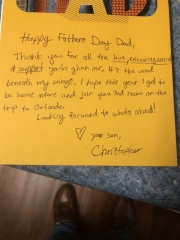 Happy Fathers Day Dad,
Thank you for all the love, encouragement
& support you've given me. It's the wind
beneath my wings. I hope this year I get to
be home more and join you and mom on the
trip to Orlando.
Looking forward to whats ahead!
♡ your son,
Christopher